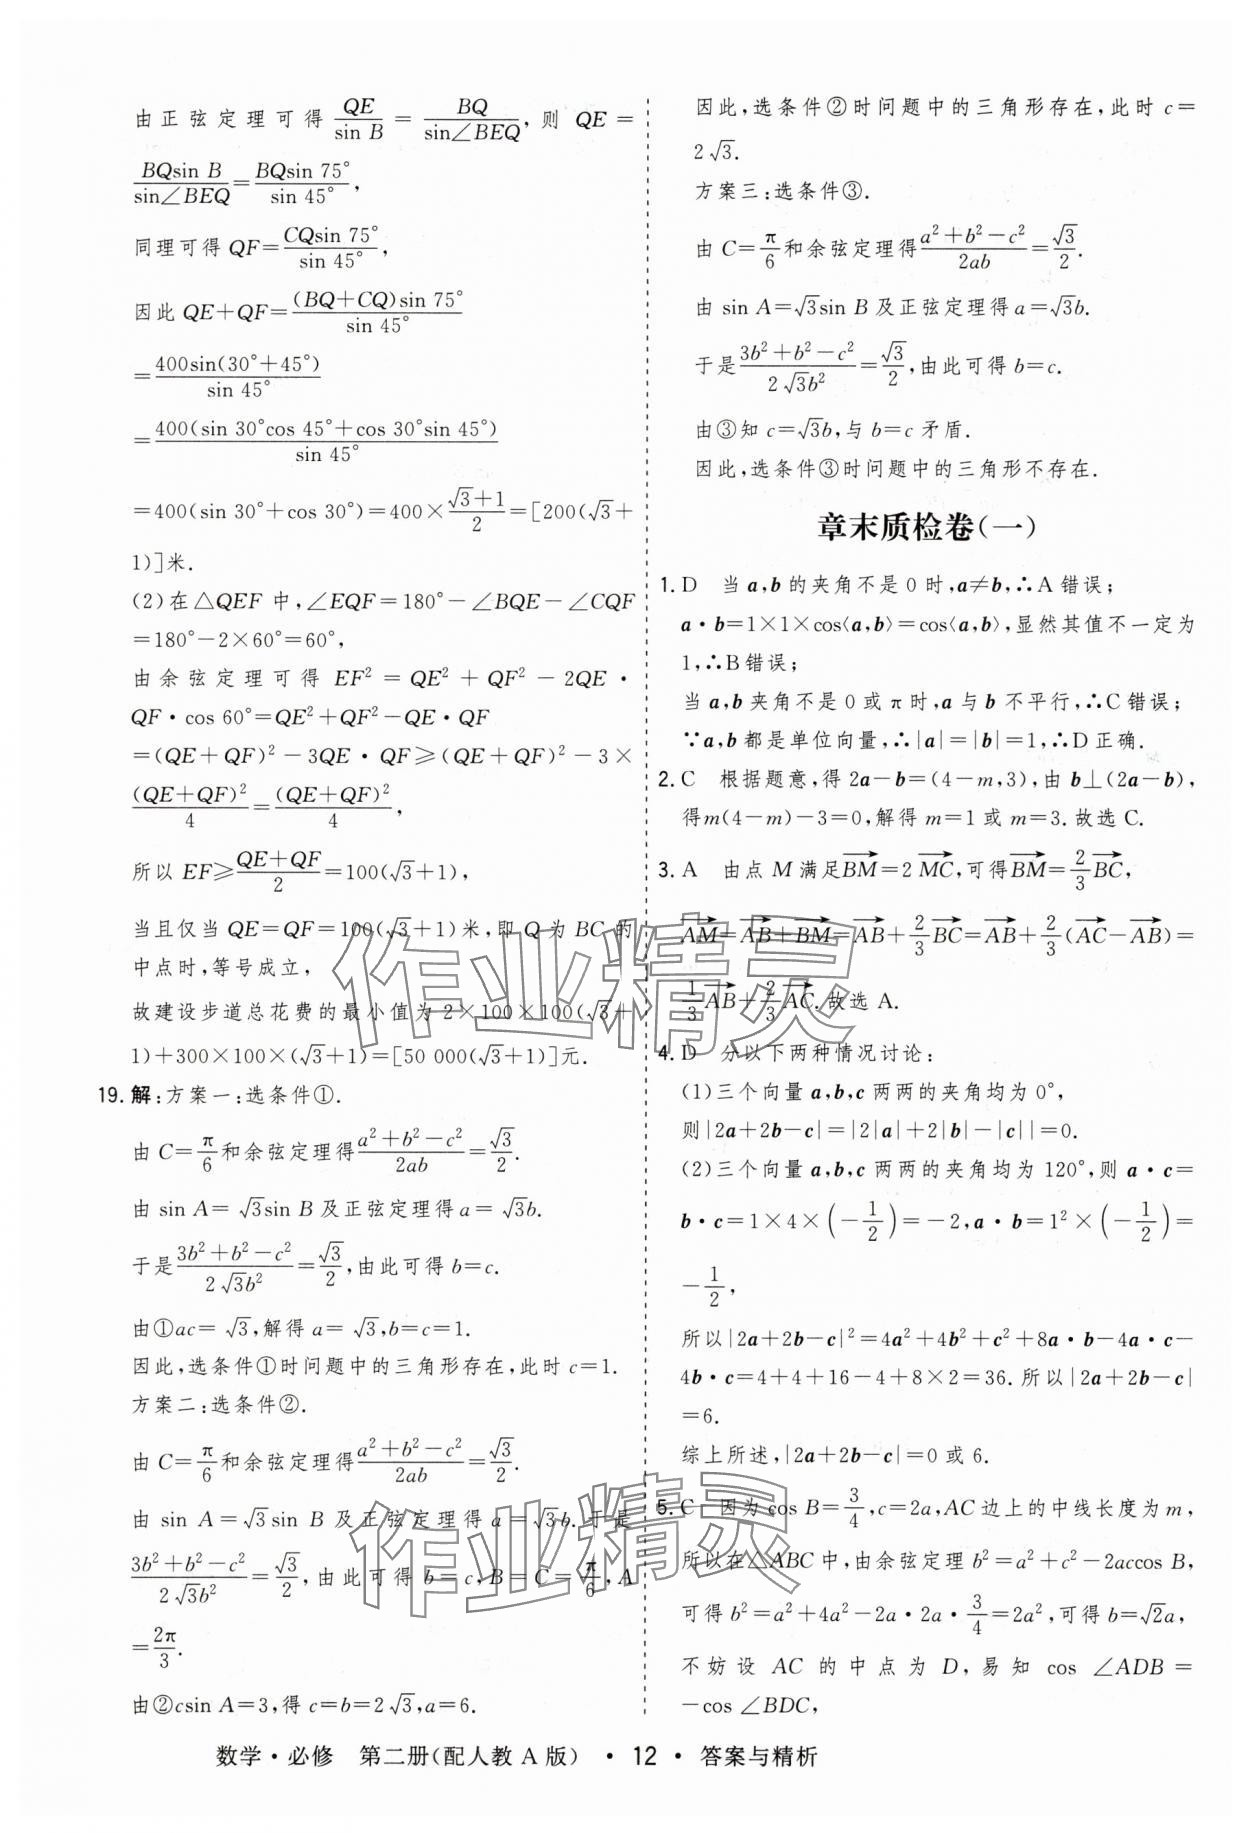 由正弦定理可得QE/sin B=BQ/sin∠BEQ,则 QE=
BQsin B/sin∠BEQ=BQsin 75°/sin 45°,
同理可得 QF=CQsin 75°/sin 45°,
因此 QE+QF=(BQ+CQ)sin 75°/sin 45°
=400sin(30°+45°)/sin 45°
=400(sin 30°cos 45°+cos 30°sin 45°)/sin 45°
=400(sin 30°+cos 30°)=400×(√3+1)/2=[200(√3+
1)]米.
(2)在△QEF 中,∠EQF=180°-∠BQE-∠CQF
=180°-2×60°=60°,
由余弦定理可得 EF²=QE²+QF²-2QE·
QF·cos 60°=QE²+QF²-QE·QF
=(QE+QF)²-3QE·QF≥(QE+QF)²-3×
(QE+QF)²/4=(QE+QF)²/4,
所以 EF≥(QE+QF)/2=100(√3+1),
当且仅当 QE=QF=100(√3+1)米,即 Q 为 BC 的
中点时,等号成立,
故建设步道总花费的最小值为 2×100×100(√3+
1)+300×100×(√3+1)=[50 000(√3+1)]元.
19. 解:方案一:选条件①.
由 C=π/6和余弦定理得(a²+b²-c²)/2ab=√3/2.
由 sin A=√3sin B 及正弦定理得a=√3b.
于是(3b²+b²-c²)/2√3b²=√3/2,由此可得 b=c.
由①ac=√3,解得 a=√3,b=c=1.
因此,选条件①时问题中的三角形存在,此时 c=1.
方案二:选条件②.
由 C=π/6和余弦定理得(a²+b²-c²)/2ab=√3/2.
由 sin A=√3sin B 及正弦定理得 a=√3b.于是
(3b²+b²-c²)/2√3b²=√3/2,由此可得 b=c,B=C=π/6,A
=2π/3.
由②csin A=3,得 c=b=2√3,a=6.
因此,选条件②时问题中的三角形存在,此时 c=
2√3.
方案三:选条件③.
由 C=π/6和余弦定理得(a²+b²-c²)/2ab=√3/2.
由 sin A=√3sin B 及正弦定理得a=√3b.
于是(3b²+b²-c²)/2√3b²=√3/2,由此可得 b=c.
由③知 c=√3b,与 b=c 矛盾.
因此,选条件③时问题中的三角形不存在.
章末质检卷(一)
1. D 当 a,b 的夹角不是 0 时,a≠b,∴A 错误;
a·b=1×1×cos⟨a,b⟩=cos⟨a,b⟩,显然其值不一定为
1,∴B错误;
当 a,b 夹角不是 0 或 π 时,a 与 b 不平行,∴C错误;
∵a,b都是单位向量,∴|a|=|b|=1,∴D正确.
2. C 根据题意,得 2a-b=(4-m,3),由 b⊥(2a-b),
得m(4-m)-3=0,解得 m=1 或 m=3.故选 C.
3. A 由点 M 满足BM→=2 MC→,可得BM→=2/3BC→,
AM→=AB→+BM→=AB→+2/3BC→=AB→+2/3(AC→-AB→)=
1/3AB→+2/3AC→.故选 A.
4. D 分以下两种情况讨论:
(1)三个向量 a,b,c 两两的夹角均为 0°,
则|2a+2b-c|=|2|a|+2|b|-|c||=0.
(2)三个向量 a,b,c 两两的夹角均为 120°,则 a·c=
b·c=1×4×(-1/2)=-2,a·b=1²×(-1/2)=
-1/2,
所以|2a+2b-c|²=4a²+4b²+c²+8a·b-4a·c-
4b·c=4+4+16-4+8×2=36.所以|2a+2b-c|
=6.
综上所述,|2a+2b-c|=0 或 6.
5. C 因为 cos B=3/4,c=2a,AC边上的中线长度为 m,
所以在△ABC中,由余弦定理 b²=a²+c²-2accos B,
可得 b²=a²+4a²-2a·2a·3/4=2a²,可得 b=√2a,
不妨设 AC 的中点为 D,易知 cos ∠ADB=
-cos ∠BDC,
数学·必修 第二册(配人教 A 版) · 12 · 答案与精析
作业精灵
作业精灵